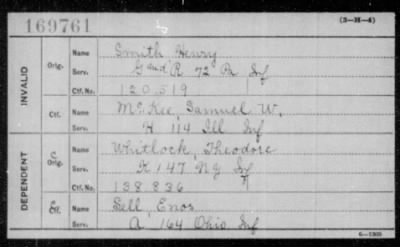 169761
(3-H-4)
INVALID
Orig.
Name
Smith Henry
Serv.
G and R 72 Pa Inf
Ctf. No.
120.519
Ctf.
Name
McKee, Samuel W.
Serv.
H 114 Ill Inf
DEPENDENT
C
Orig.
Name
Whitlock, Theodore
Serv.
K 147 NY Inf
Ctf. No.
138.836
C
Ctf.
Name
Sell, Enos
Serv.
A 164 Ohio Inf
6-1305